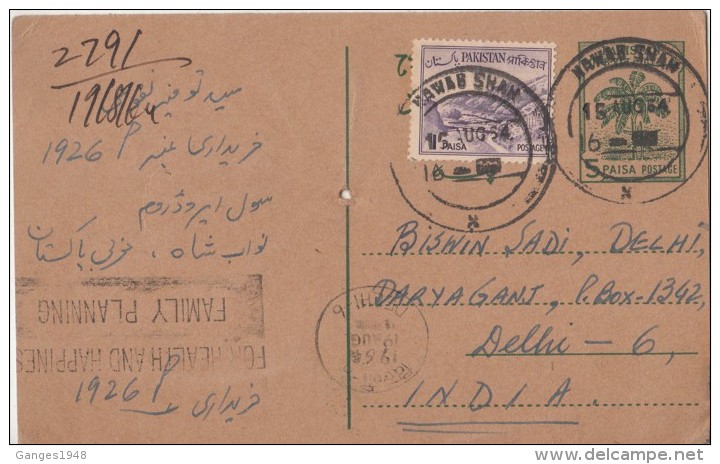 2791
PAKISTAN
پاکستان
পাকিস্তান
1 PAISA POSTAGE
NAWAB SHAH
15 AUG 64
NAWAB SHAH
15 AUG 64
5 PAISA POSTAGE
خریداری نمبر 1926 P
سول ایروڈروم
نواب شاہ، مغربی پاکستان
BISWIN SADI, DELHI,
DARYAGANJ, P.BOX-1342,
Delhi - 6,
INDIA.
DELHI-6
19 AUG
1964
FOR HEALTH AND HAPPINES
FAMILY PLANNING
خریداری 1926 P
Ganges1948
delcampe.net